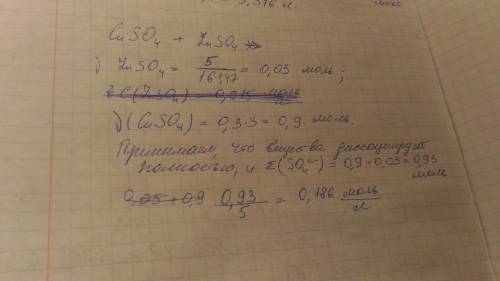 = 3,376 л.
мол
CuSO₄ + ZnSO₄
1) ZnSO₄ = 5/161,47 = 0,03 моль;
2 C(ZnSO₄) = 0,015 моль/л
1) (CuSO₄) = 0,3·3 = 0,9 моль
Принимаем, что вещества диссоциируют
полностью, и Σ(SO₄²⁻) = 0,9+0,03=0,93
моль
0,03 + 0,9 0,93/5 = 0,186 моль/л